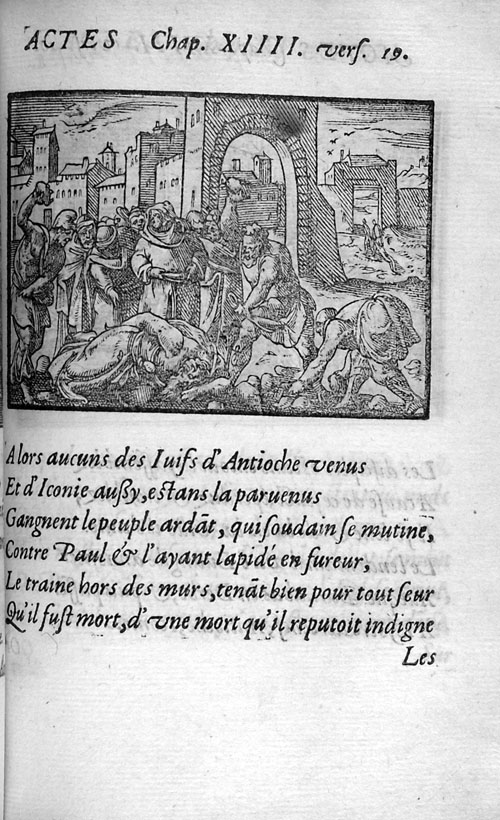 ACTES Chap. XIIII. vers. 19.
Alors aucuns des Iuifs d'Antioche venus
Et d'Iconie außy, estans la paruenus
Gangnent le peuple ardāt, qui soudain se mutine,
Contre Paul & l'ayant lapidé en fureur,
Le traine hors des murs, tenāt bien pour tout seur
Qu'il fust mort, d'vne mort qu'il reputoit indigne
Les